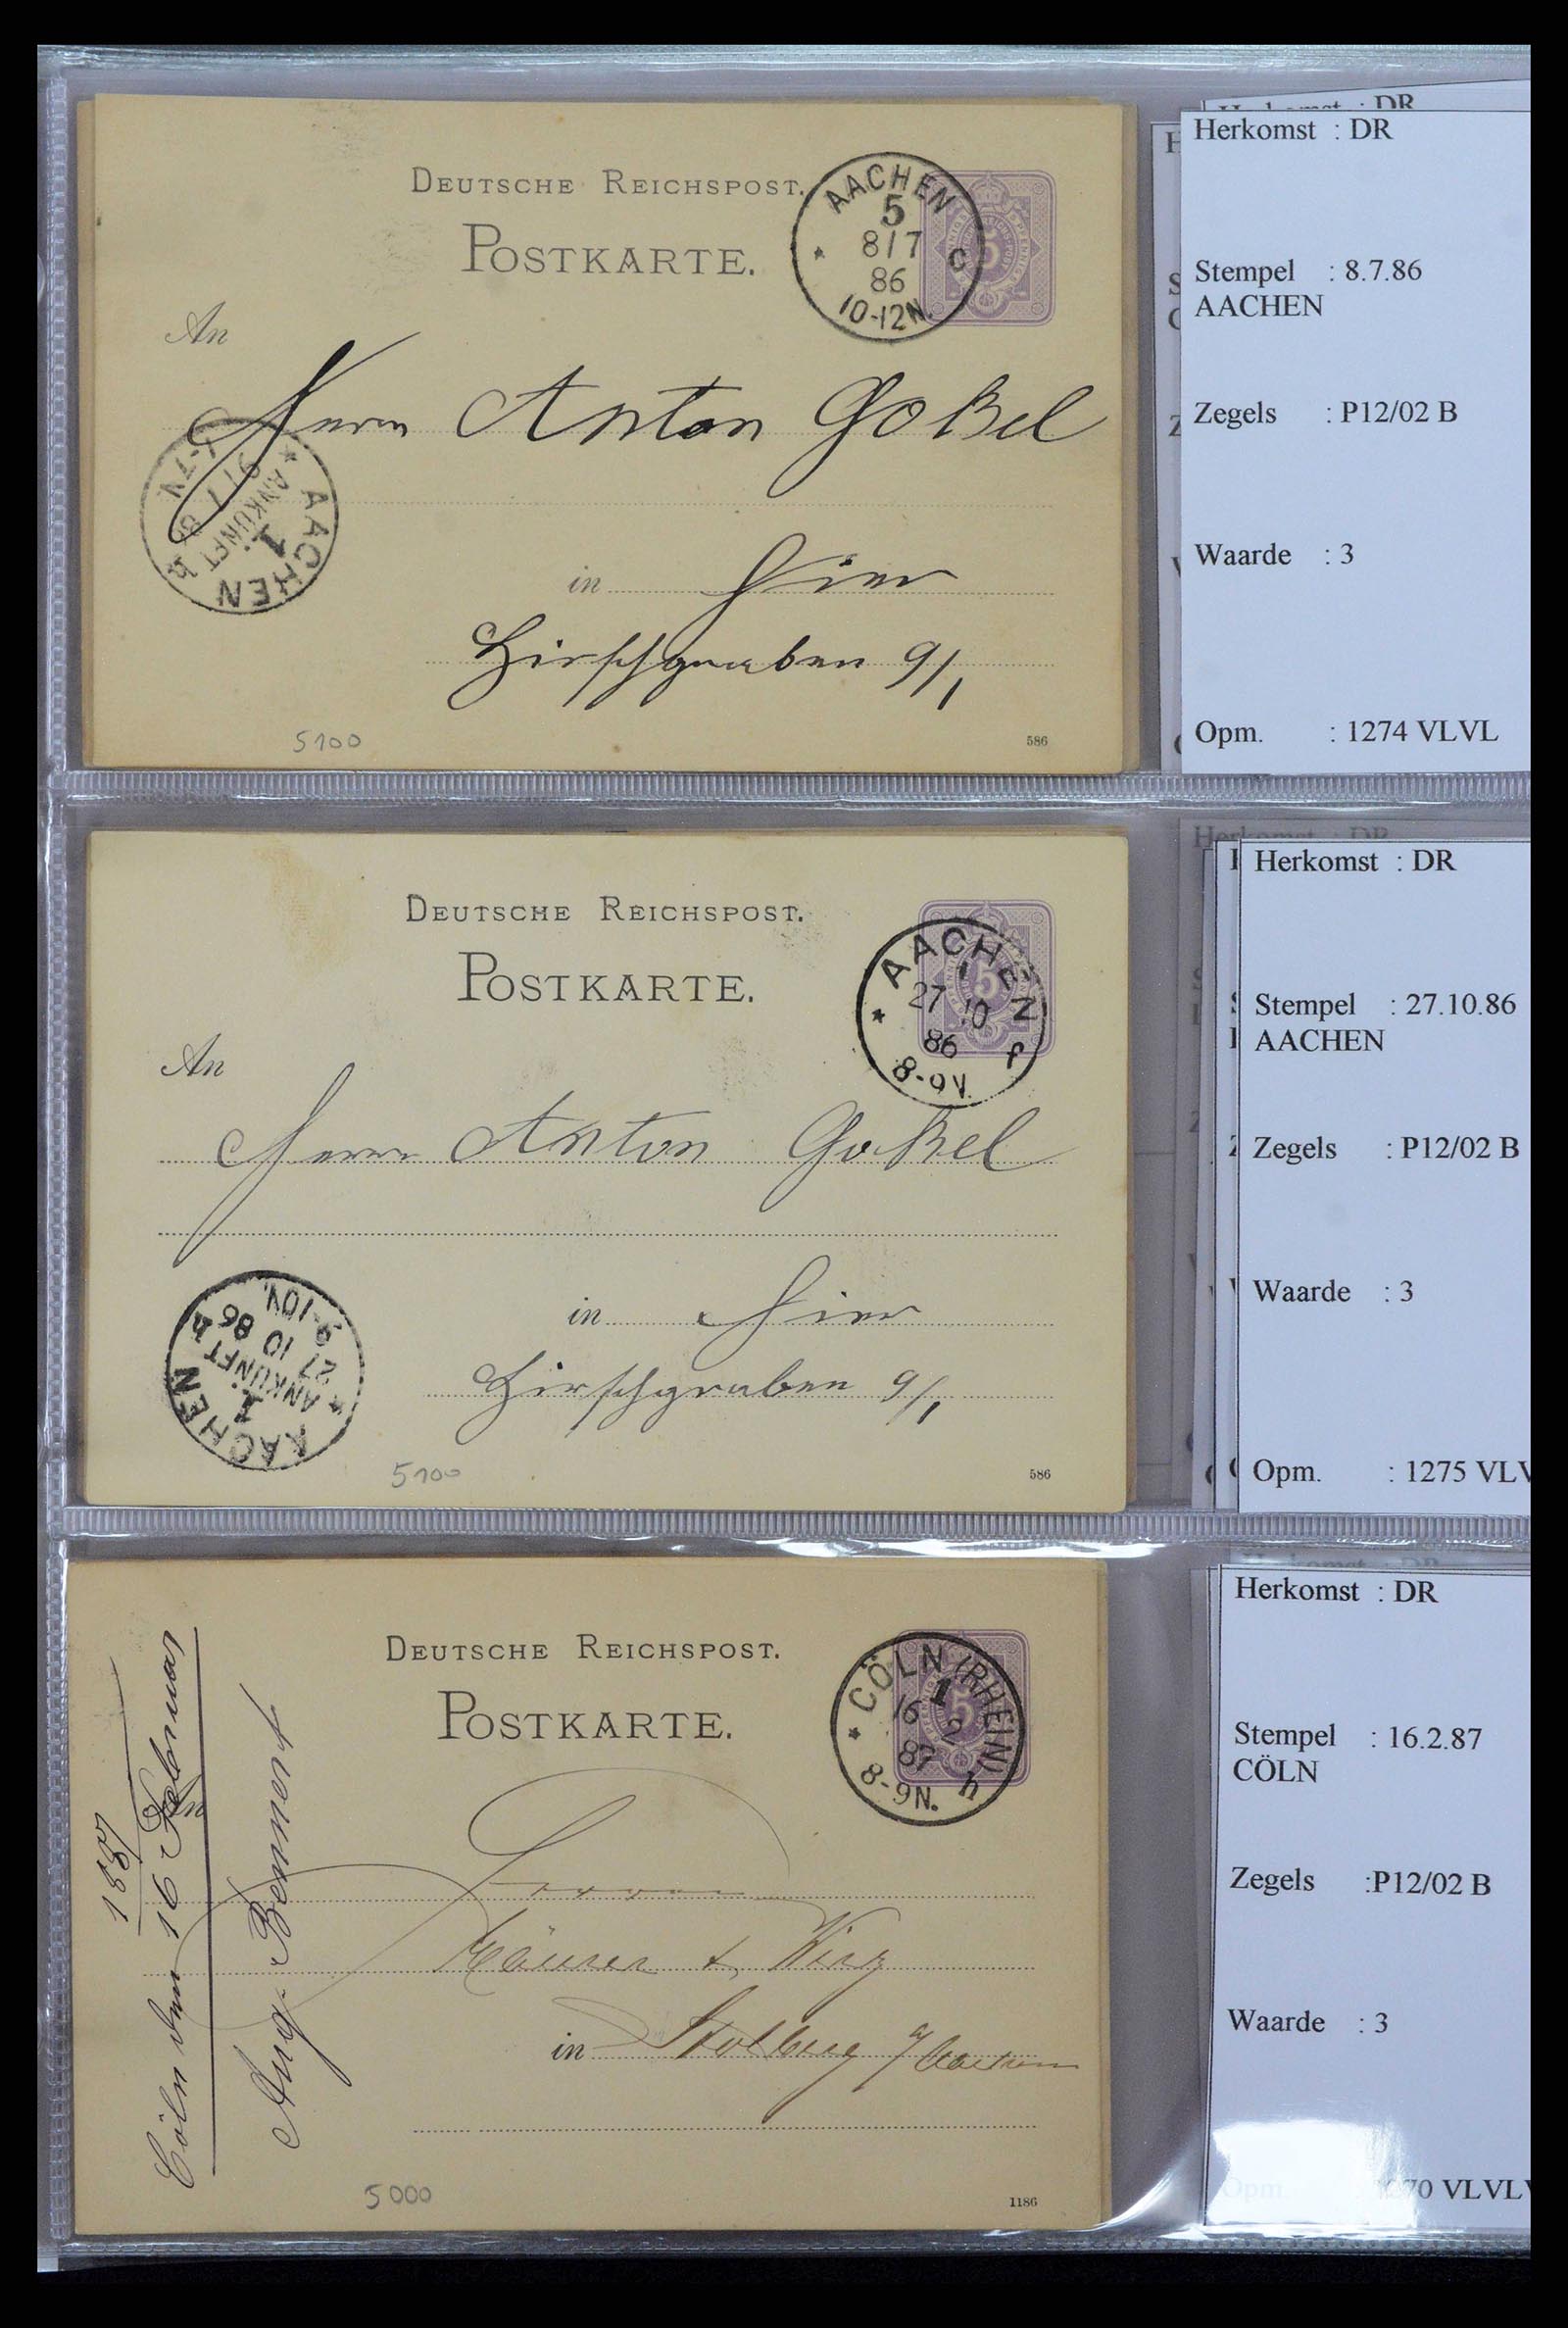 DEUTSCHE REICHSPOST.
POSTKARTE.
AACHEN
5
8/7
86
10-12N.
* C
5
An
Herrn Anton Goßel
in Hier
Hirschgraben 9/1
AACHEN
1
* ANKUNFT h
9/7
5100
586
Herkomst : DR
Herkomst : DR
Stempel : 8.7.86
AACHEN
Zegels : P12/02 B
Waarde : 3
Opm. : 1274 VLVL
DEUTSCHE REICHSPOST.
POSTKARTE.
AACHEN
1
27 10
86
8-9V.
* f
5
An
Herrn Anton Goßel
in Hier
Hirschgraben 9/1
AACHEN
1
* ANKUNFT h
27 10 86
9-10V.
5100
586
Herkomst : DR
Herkomst : DR
Stempel : 27.10.86
AACHEN
Zegels : P12/02 B
Waarde : 3
Opm. : 1275 VLV
DEUTSCHE REICHSPOST.
POSTKARTE.
* CÖLN (RHEIN) h
1
16 2
87
8-9N.
5
An
1887
Cöln den 16 Februar
Aug. Bemmert
Herren
Mäurer & Wirz
in Stolberg a/ Aachen
5000
1186
Herkomst : DR
Herkomst : DR
Stempel : 16.2.87
CÖLN
Zegels :P12/02 B
Waarde : 3
Opm. : 70 VLVLV